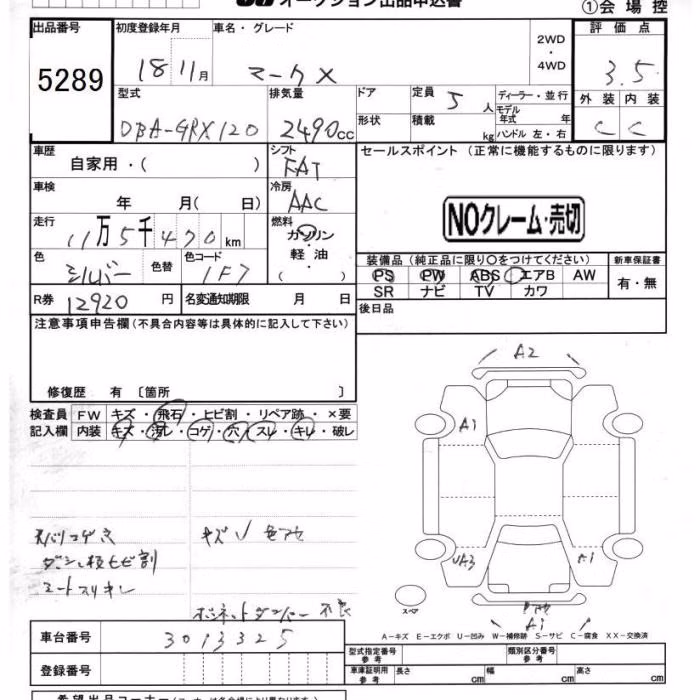 オークション出品申込書
①会場控
出品番号 初度登録年月 車名・グレード 2WD・4WD 評価点
5289 18 11月 マークX 3.5
型式 排気量 ドア 定員 5人 ディーラー・並行 外装 内装
DBA-GRX120 2490cc 形状 積載 kg モデル年式 年 ハンドル 左・右 C C
車歴 自家用・( ) シフト FAT セールスポイント (正常に機能するものに限ります)
車検 年 月( 日) 冷房 AAC
NOクレーム・売切
走行 11万5千470km 燃料 ガソリン・軽油・( )
色 シルバー 色替 色コード 1F7
装備品(純正品に限り〇をつけてください) 新車保証書
PS PW ABS エアB AW 有・無
SR ナビ TV カワ
R券 12920円 名変通知期限 月 日
後日品
注意事項申告欄(不具合内容等は具体的に記入して下さい)
修復歴 有 〔箇所 〕
検査員記入欄 FW キズ・飛石・ヒビ割・リペア跡・×要
内装 キズ・汚レ・コゲ・穴・スレ・キレ・破レ
A2
A1
UA3 A1
スペア
A1
ダッシュ板ヒビ割
シートスリキレ
ボンネットダンパー不良
A-キズ E-エクボ U-凹み W-補修跡 S-サビ C-腐食 XX-交換済
車台番号 3013325
登録番号
型式指定番号 参考 類別区分番号 参考
車庫証明用 参考 長さ cm 幅 cm 高さ cm